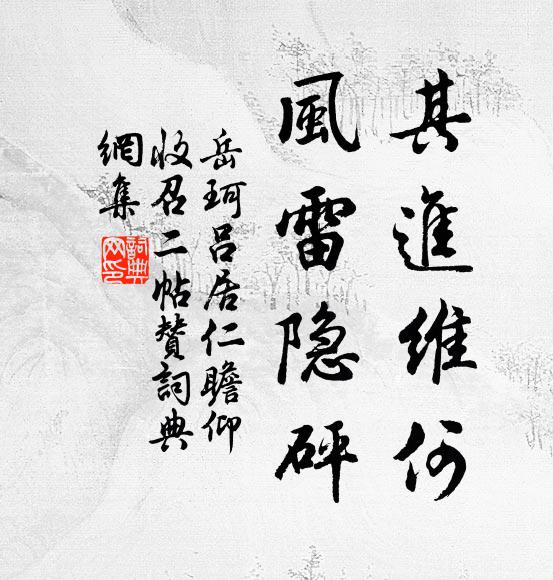 其進維何
風雷隐砰
岳珂呂居仁瞻仰
收召二帖賛詞典
網集
詞典網印